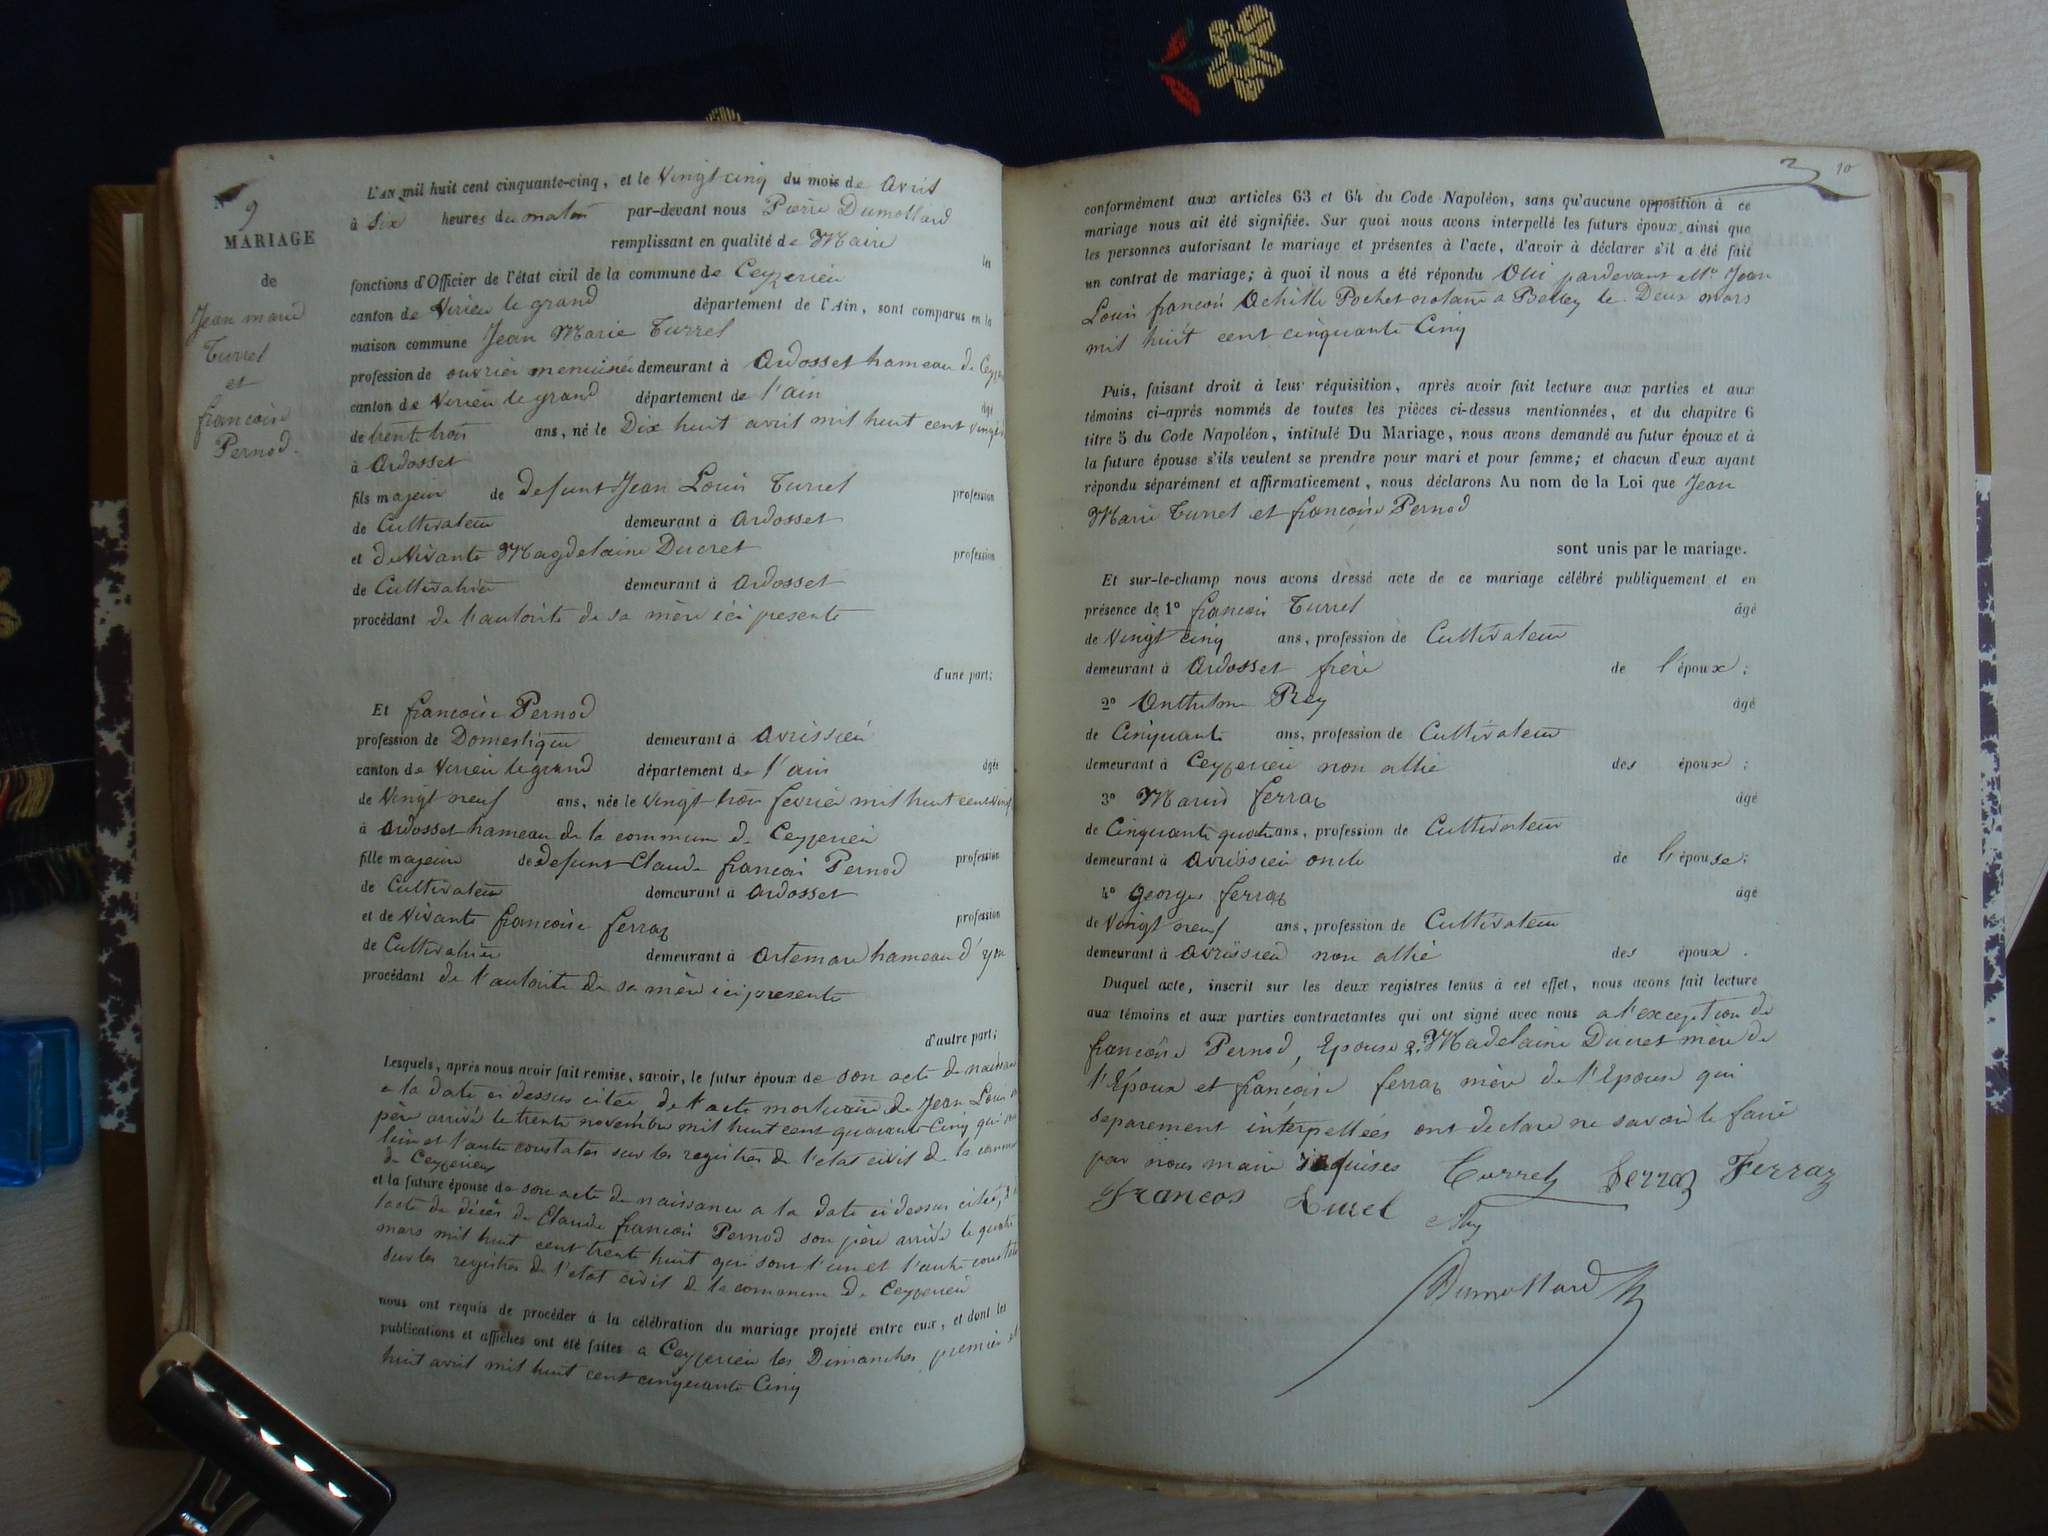 N 9
MARIAGE
de
Jean marie
Turrel
et
francoise
Pernod.
L'AN mil huit cent cinquante-cinq, et le Vingt cinq du mois de avril
à Six heures du matin par-devant nous Pierre Dumollard
remplissant en qualité de Maire les
fonctions d'Officier de l'état civil de la commune de Ceyzerieu
canton de Virieu le grand département de l'Ain, sont comparus en la
maison commune Jean Marie Turrel
profession de ouvrier menuisier demeurant à Ardosset hameau de
canton de Virieu le grand département de l'ain âgé
de trente trois ans, né le Dix huit avril mil huit cent vingt
à Ardosset
fils majeur de defunt Jean Louis Turrel profession
de Cultivateur demeurant à Ardosset
et de Vivante Magdelaine Ducret profession
de Cultivatrice demeurant à Ardosset
procédant de l'autorité de sa mère ici presente
d'une part;
Et francoise Pernod
profession de Domestique demeurant à Avrissieu
canton de Virieu le grand département de l'ain âgée
de Vingt neuf ans, née le vingt trois fevrier mil huit cent vingt
à Ardosset hameau de la commune de Ceyzerieu
fille majeure de defunt Claude francois Pernod profession
de Cultivateur demeurant à Ardosset
et de Vivante francoise ferraz profession
de Cultivatrice demeurant à Artemare hameau d'
procédant de l'autorité de sa mère ici presente
d'autre part;
Lesquels, après nous avoir fait remise, savoir, le futur époux de son acte de naissance
a la date ci dessus citée de l'acte mortuaire de Jean Louis
père arrivé le trente novembre mil huit cent quarante Cinq qui
l'un et l'autre constatés sur les registres de l'etat civil de la commune
de Ceyzerieu
et la future épouse de son acte de naissance a la date ci dessus citée,
l'acte de décès de Claude francois Pernod son père arrivé le quatre
mars mil huit cent trente huit qui sont l'un et l'autre constatés
sur les registres de l'etat civil de la commune de Ceyzerieu
nous ont requis de procéder à la célébration du mariage projeté entre eux, et dont les
publications et affiches ont été faites a Ceyzerieu les Dimanches premier et
huit avril mil huit cent cinquante Cinq
10
conformément aux articles 63 et 64 du Code Napoléon, sans qu'aucune opposition à ce
mariage nous ait été signifiée. Sur quoi nous avons interpellé les futurs époux ainsi que
les personnes autorisant le mariage et présentes à l'acte, d'avoir à déclarer s'il a été fait
un contrat de mariage; à quoi il nous a été répondu Oui pardevant Me Jean
Louis francois Achille Pochet notaire a Belley le Deux mars
mil huit cent cinquante Cinq
Puis, faisant droit à leur réquisition, après avoir fait lecture aux parties et aux
témoins ci-après nommés de toutes les pièces ci-dessus mentionnées, et du chapitre 6
titre 5 du Code Napoléon, intitulé Du Mariage, nous avons demandé au futur époux et à
la future épouse s'ils veulent se prendre pour mari et pour femme; et chacun d'eux ayant
répondu séparément et affirmativement, nous déclarons Au nom de la Loi que Jean
Marie Turrel et francoise Pernod
sont unis par le mariage.
Et sur-le-champ nous avons dressé acte de ce mariage célébré publiquement et en
présence de 1º francois Turrel âgé
de Vingt cinq ans, profession de Cultivateur
demeurant à Ardosset frère de l'époux;
2º Anthelme Rey âgé
de Cinquante ans, profession de Cultivateur
demeurant à Ceyzerieu non allié des époux;
3º Marin ferraz âgé
de Cinquante quatre ans, profession de Cultivateur
demeurant à Avrissieu oncle de l'épouse;
4º Georges ferraz âgé
de Vingt neuf ans, profession de Cultivateur
demeurant à avrissieu non allié des époux.
Duquel acte, inscrit sur les deux registres tenus à cet effet, nous avons fait lecture
aux témoins et aux parties contractantes qui ont signé avec nous a l'exception de
francoise Pernod, Epouse 2. Madelaine Ducret mère de
l'Epoux et françoise ferraz mère de l'Epouse qui
separement interpellées ont declaré ne savoir le faire
par nous maire requises Turrel ferraz Ferraz
francos Turrel Rey
Dumollard